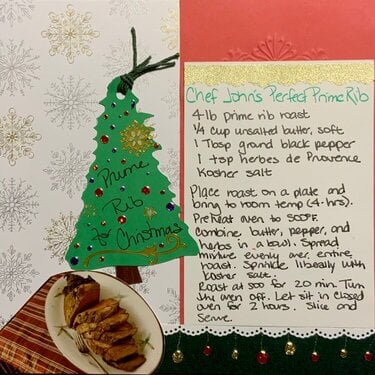 Prime
Rib
for Christmas
Chef John's Perfect Prime Rib
4 lb prime rib roast
1/4 cup unsalted butter, soft
1 Tbsp ground black pepper
1 tsp herbes de Provence
Kosher salt
Place roast on a plate and
bring to room temp (4 hrs).
Preheat oven to 500°F.
Combine butter, pepper, and
herbs in a bowl. Spread
mixture evenly over entire
roast. Sprinkle liberally with
Kosher salt.
Roast at 500 for 20 min. Turn
the oven off. Let sit in closed
oven for 2 hours. Slice and
Serve.